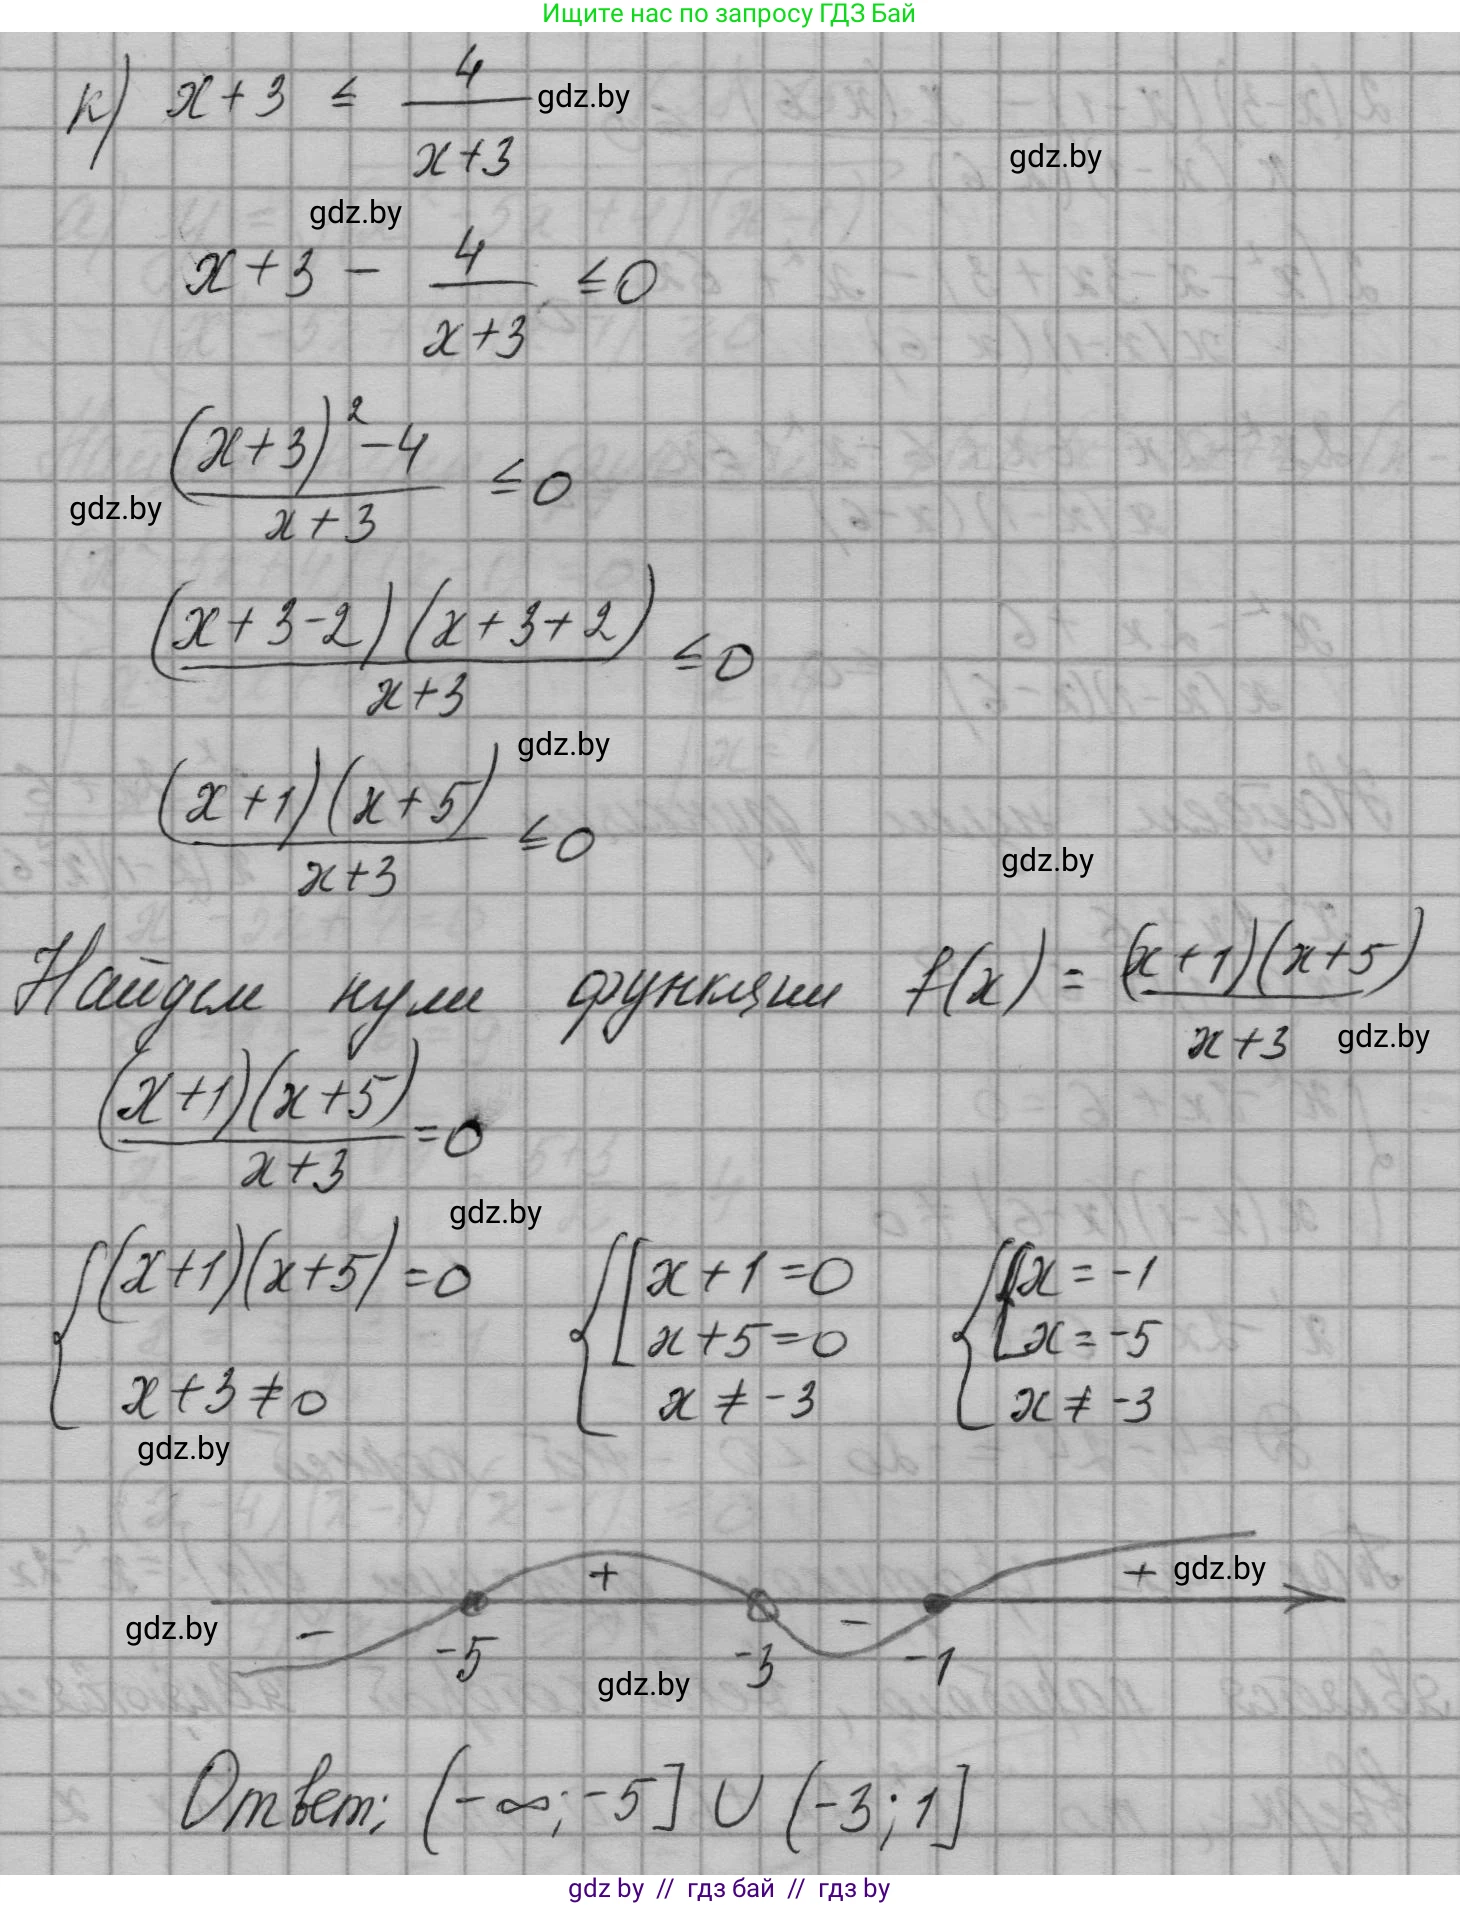 Ищите нас по запросу ГДЗ Бай
к) x+3 ≤ 4/(x+3) gdz.by
gdz.by
gdz.by
x+3 - 4/(x+3) ≤0
((x+3)²-4)/(x+3) ≤0
gdz.by
((x+3-2)(x+3+2))/(x+3) ≤0
gdz.by
((x+1)(x+5))/(x+3) ≤0
gdz.by
Найдем нули функции f(x) = ((x+1)(x+5))/(x+3)
gdz.by
((x+1)(x+5))/(x+3) =0
gdz.by
{ (x+1)(x+5)=0 { [ x+1=0 { [ x=-1
x+5=0 x=-5
x+3≠0 x≠-3 x≠-3
gdz.by
+ + gdz.by
gdz.by - -
-5 -3 -1
gdz.by
Ответ; (-∞;-5] ∪ (-3;1]
gdz by // гдз бай // гдз by